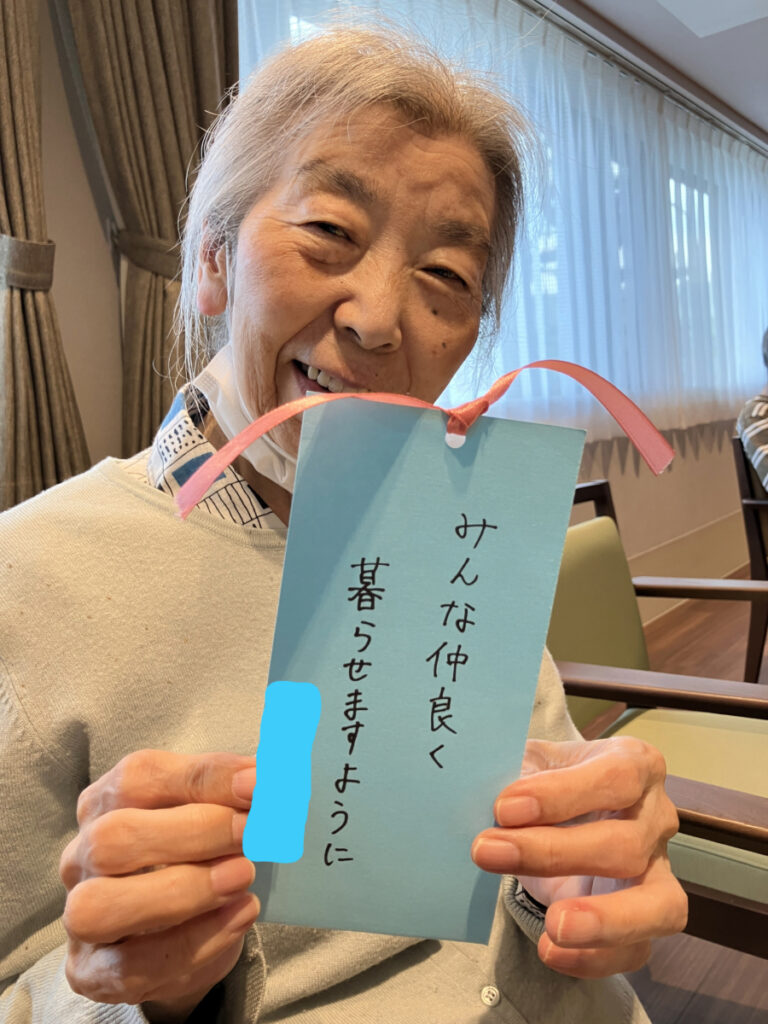 みんな仲良く
暮らせますように